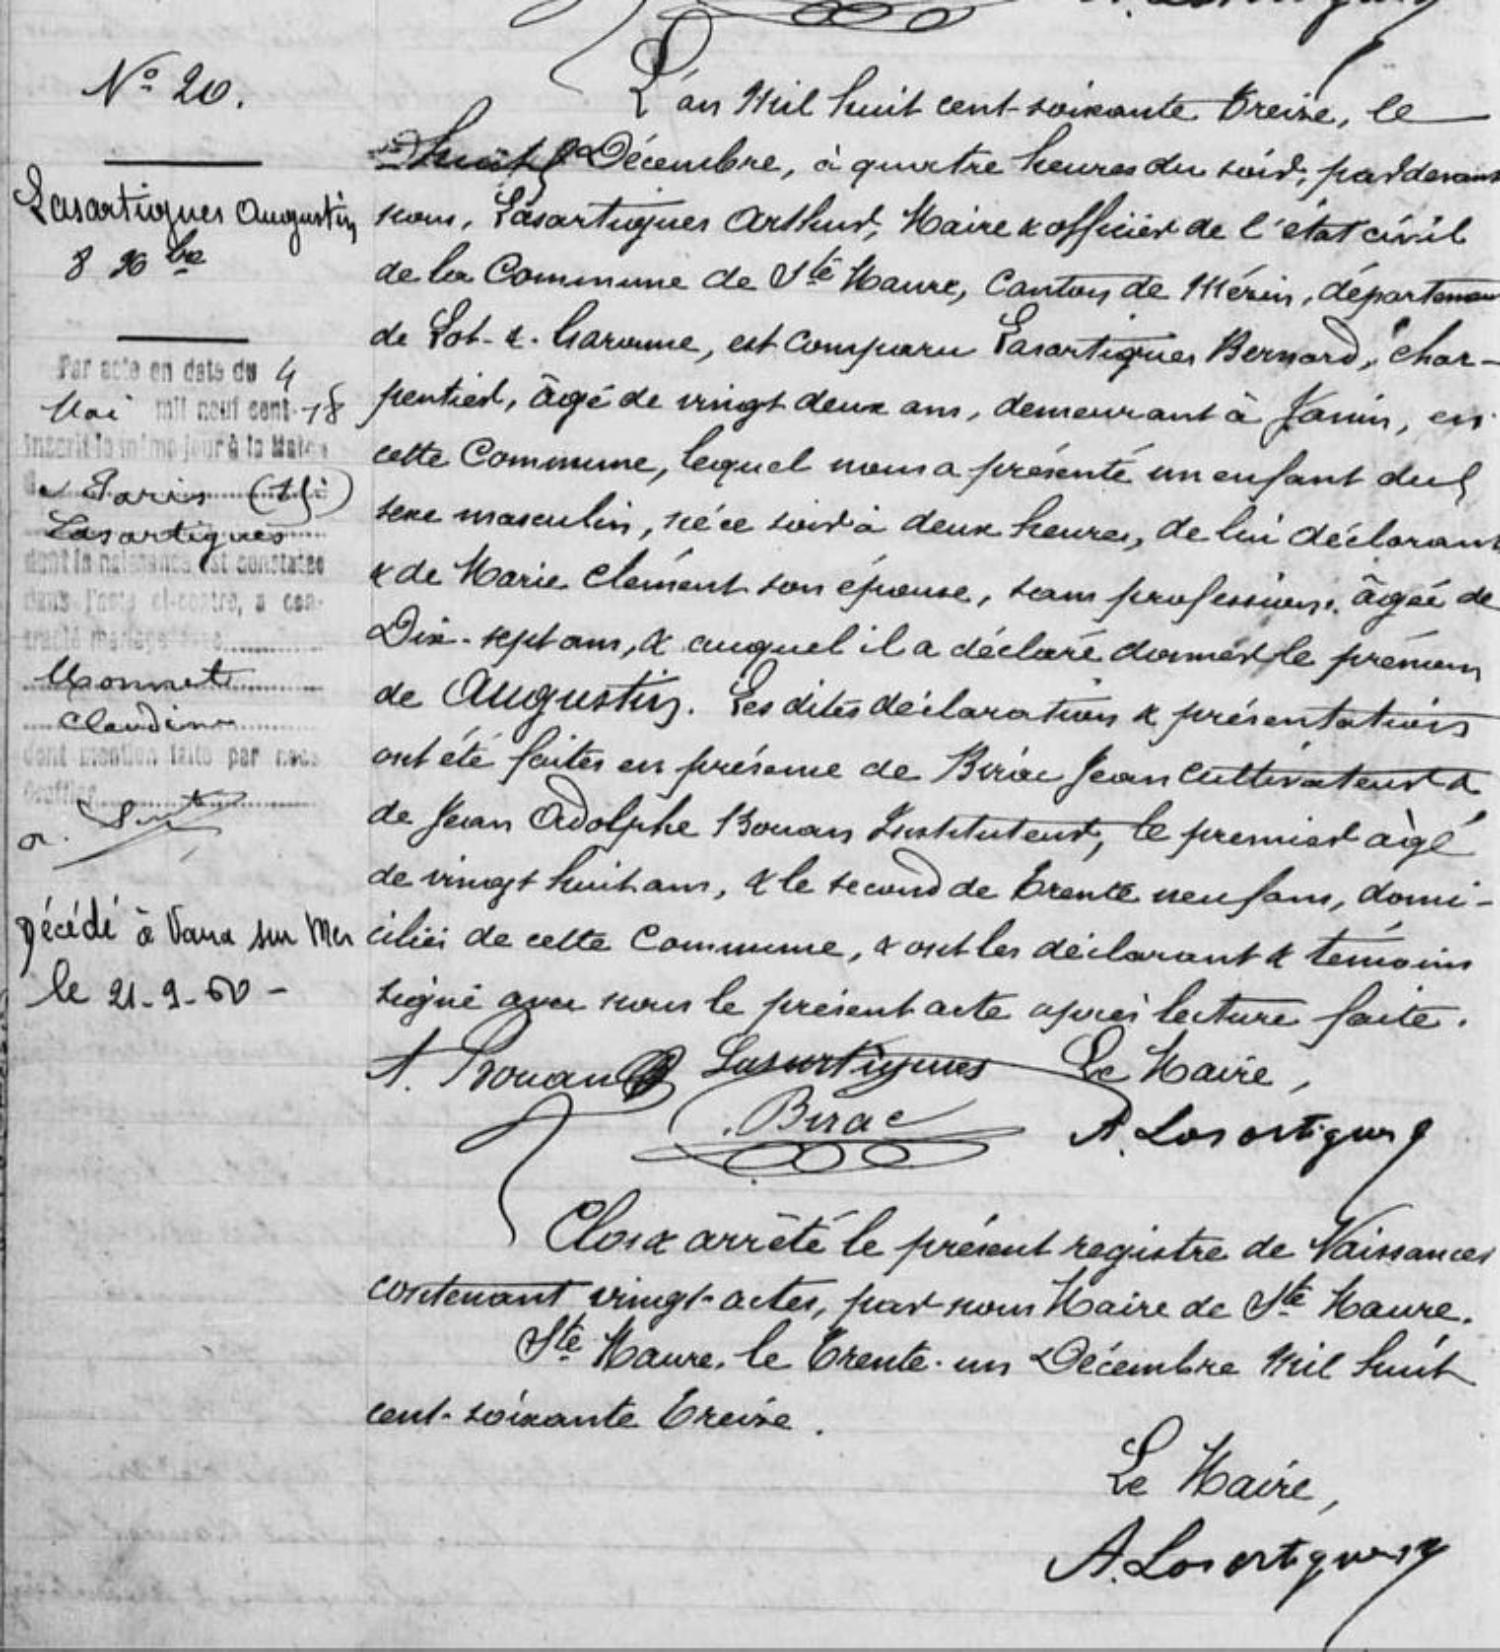 N° 20.
Lasartigues Augustin
8 Xbre
Par acte en date du 4
Mai mil neuf cent 18
inscrit le même jour à la Mairie
de Paris
Lasartigues
dont la naissance est constatée
dans l'acte ci-contre, a con-
tracté mariage avec
Monnet
Claudine
dont mention faite par nous
Greffier
Décédé à Vaux sur Mer
le 21-9-60 -
L'an Mil huit cent soixante Treize, le
huit Décembre, à quatre heures du soir, pardevant
nous, Lasartigues Arthur, Maire & officier de l'état civil
de la Commune de Ste Maure, Canton de Mézin, département
de Lot-&-Garonne, est comparu Lasartigues Bernard, char-
pentier, âgé de vingt deux ans, demeurant à Janin, en
cette Commune, lequel nous a présenté un enfant du
sexe masculin, né ce soir à deux heures, de lui déclarant
& de Marie Clément son épouse, sans profession, âgée de
Dix-sept ans, & auquel il a déclaré donner le prénom
de Augustin. Les dites déclaration & présentation
ont été faites en présence de Birac Jean Cultivateur &
de Jean Adolphe Bouan Instituteur, le premier âgé
de vingt huit ans, & le second de Trente neuf ans, domi-
ciliés de cette Commune, & ont les déclarant & témoins
signé avec nous le présent acte après lecture faite.
A. Bouan Lasartigues Le Maire,
Birac A. Lasartigues
Clos & arrêté le présent registre de Naissances
contenant vingt-actes, par nous Maire de Ste Maure.
Ste Maure, le Trente-un Décembre Mil huit
cent-soixante Treize.
Le Maire,
A. Lasartigues